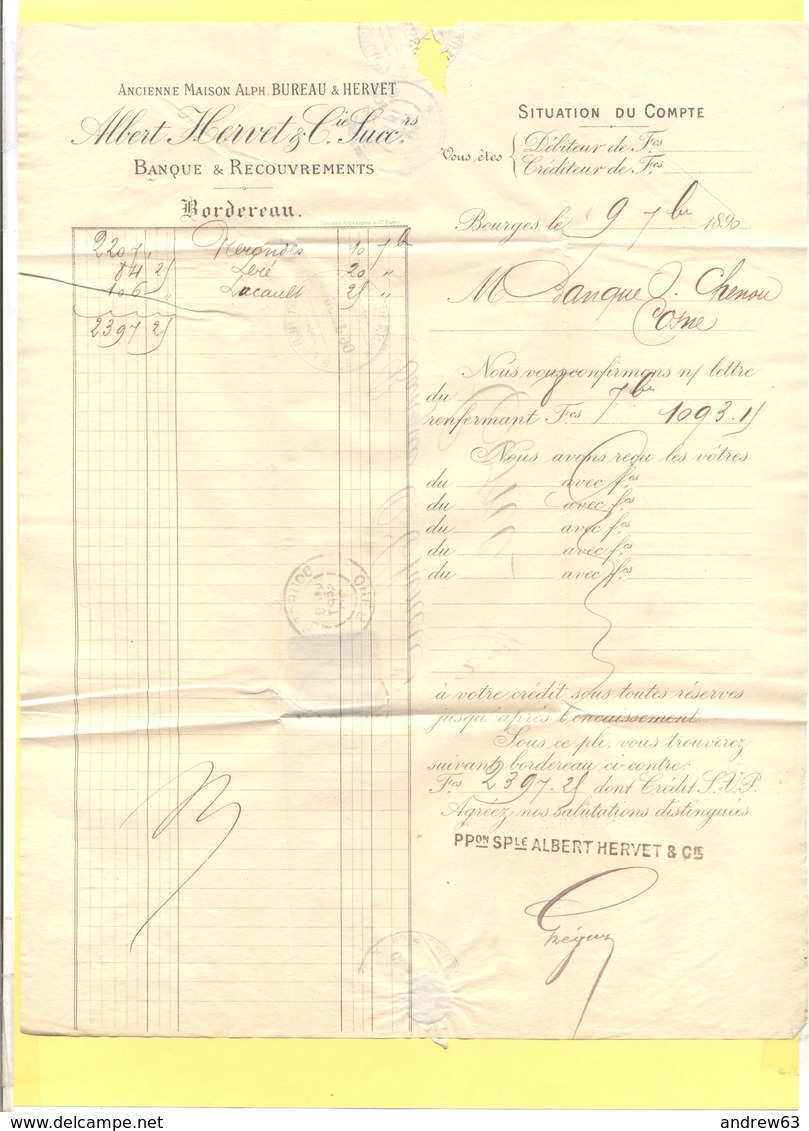 ANCIENNE MAISON ALPH. BUREAU & HERVET
Albert Hervet & Cie Succrs
BANQUE & RECOUVREMENTS
Bordereau.
2207 " Nérondes 10 7bre
84 25 Léré 20 "
106 " Lacault 25 "
2397 25
SITUATION DU COMPTE
Vous êtes { Débiteur de Fcs
Créditeur de Fcs
Bourges, le 9 7bre 1890
M Banque J. Chenou
Cosne
Nous vous confirmons n/ lettre
du 8 7bre
renfermant Fcs 1093.15
Nous avons reçu les vôtres
du avec fcs
du avec fcs
du avec fcs
du avec fcs
du avec fcs
à votre crédit sous toutes réserves
jusqu'après l'encaissement
Sous ce pli, vous trouverez
suivant bordereau ci-contre:
Fcs 2397.25 dont Crédit S.V.P.
Agréez nos salutations distinguées
PPon SPLE ALBERT HERVET & CIE
andrew63